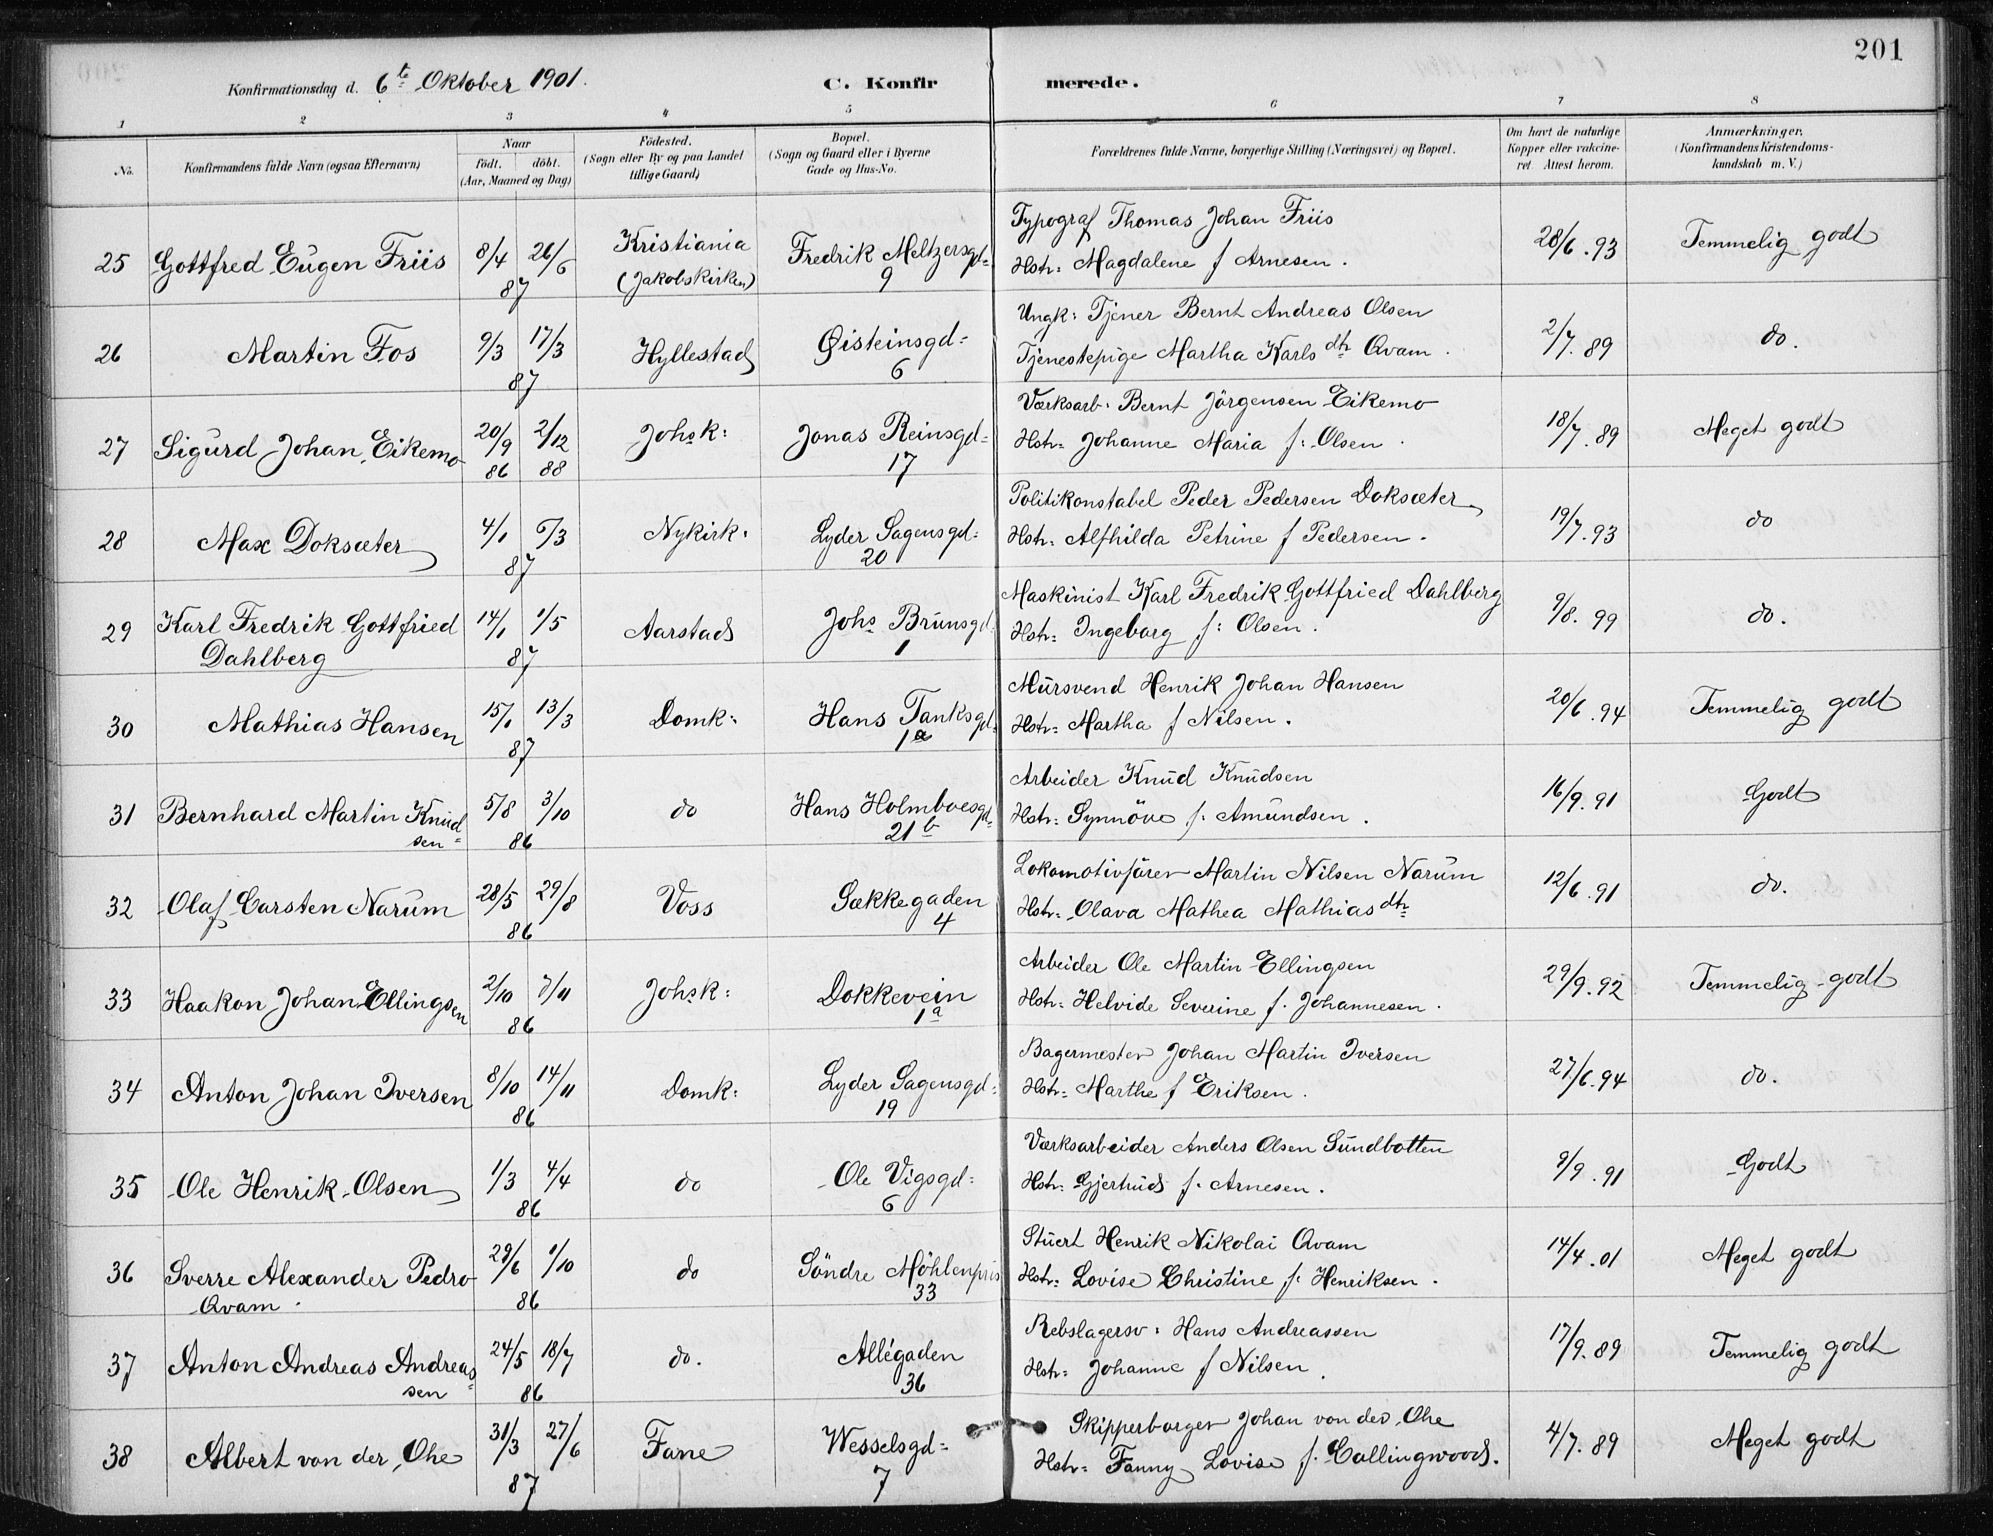 201
Konfirmationsdag d. 6te Oktober 1901. C. Konfir merede.
1 2 3 4 5 6 7 8
No. Konfirmandens fulde Navn (ogsaa Efternavn) Naar födt. döbt. (Aar, Maaned og Dag) Födested. (Sogn eller By og paa Landet tillige Gaard) Bopæl. (Sogn og Gaard eller i Byerne Gade og Hus-No. Forældrenes fulde Navne, borgerlige Stilling (Næringsvei) og Bopæl. Om havt de naturlige Kopper eller vakcineret. Attest herom. Anmærkninger. (Konfirmandens Kristendomskundskab m. V.)
25 Gottfred Eugen Friis 8/4 26/6 87 Kristiania (Jakobskirken) Fredrik Meltzersgd= 9 Typograf Thomas Johan Friis
Hstr: Magdalene f Arnesen. 28/6.93 Temmelig godt
26 Martin Fos 9/3 17/3 87 Hyllestad Øisteinsgd= 6 Ungk: Tjener Bernt Andreas Olsen
Tjenestepige Martha Karlsdtr Qvam. 2/7.89 do.
27 Sigurd Johan Eikemo 20/9 86 2/12 88 Johsk: Jonas Reinsgd= 17 Værksarb: Bernt Jörgensen Eikemo
Hstr: Johanne Maria f: Olsen. 18/7.89 Meget godt
28 Max Doksæter 4/1 6/3 87 Nykirk: Lyder Sagensgd= 20 Politikonstabel Peder Pedersen Doksæter
Hstr: Alfhilda Petrine f Pedersen. 19/7.93 do
29 Karl Fredrik Gottfried
Dahlberg 14/1 1/5 87 Aarstad Johs Brunsgd= 1 Maskinist Karl Fredrik Gottfried Dahlberg
Hstr: Ingeborg f: Olsen. 9/8.99 do.
30 Mathias Hansen 15/1 13/3 87 Domk: Hans Tanksgd= 1a Mursvend Henrik Johan Hansen
Hstr: Martha f Nilsen. 20/6.94 Temmelig godt
31 Bernhard Martin Knud=
sen 5/8 3/10 86 do Hans Holmboesgd= 21b Arbeider Knud Knudsen
Hstr: Synnöve f: Amundsen. 16/9.91 Godt
32 Olaf Carsten Narum 28/5 29/8 86 Voss Sækkegaden 4 Lokomotivförer Martin Nilsen Narum
Hstr: Olava Mathea Mathiasdtr 12/6.91 do.
33 Haakon Johan Ellingsen 2/10 7/11 86 Johsk: Dokkevein 1a Arbeider Ole Martin Ellingsen
Hstr: Helvide Severine f. Johannesen. 29/9.92 Temmelig godt
34 Anton Johan Iversen 8/10 14/11 86 Domk: Lyder Sagensgd= 19 Bagermester Johan Martin Iversen
Hstr: Marthe f Eriksen. 27/6.94 do.
35 Ole Henrik Olsen 1/3 4/4 86 do Ole Vigsgd= 6 Værksarbeider Anders Olsen Sundbotten
Hstr: Gjertrud f. Arnesen. 9/9.91 Godt
36 Sverre Alexander Pedro
Qvam. 29/6 1/10 86 do Söndre Möhlenpris 33 Stuert Henrik Nikolai Qvam
Hstr: Lovise Christine f: Henriksen. 14/4.01 Meget godt
37 Anton Andreas Andreas=
sen 24/5 18/7 86 do. Allégaden 36 Rebslagersv: Hans Andreassen
Hstr: Johanne f Nilsen. 17/9.89 Temmelig godt
38 Albert von der Ohe 31/3 27/6 87 Fane Wesselsgd= 7 Skipperborger Johan von der Ohe
Hstr: Fanny Lovise f. Callingwood. 4/7.89 Meget godt